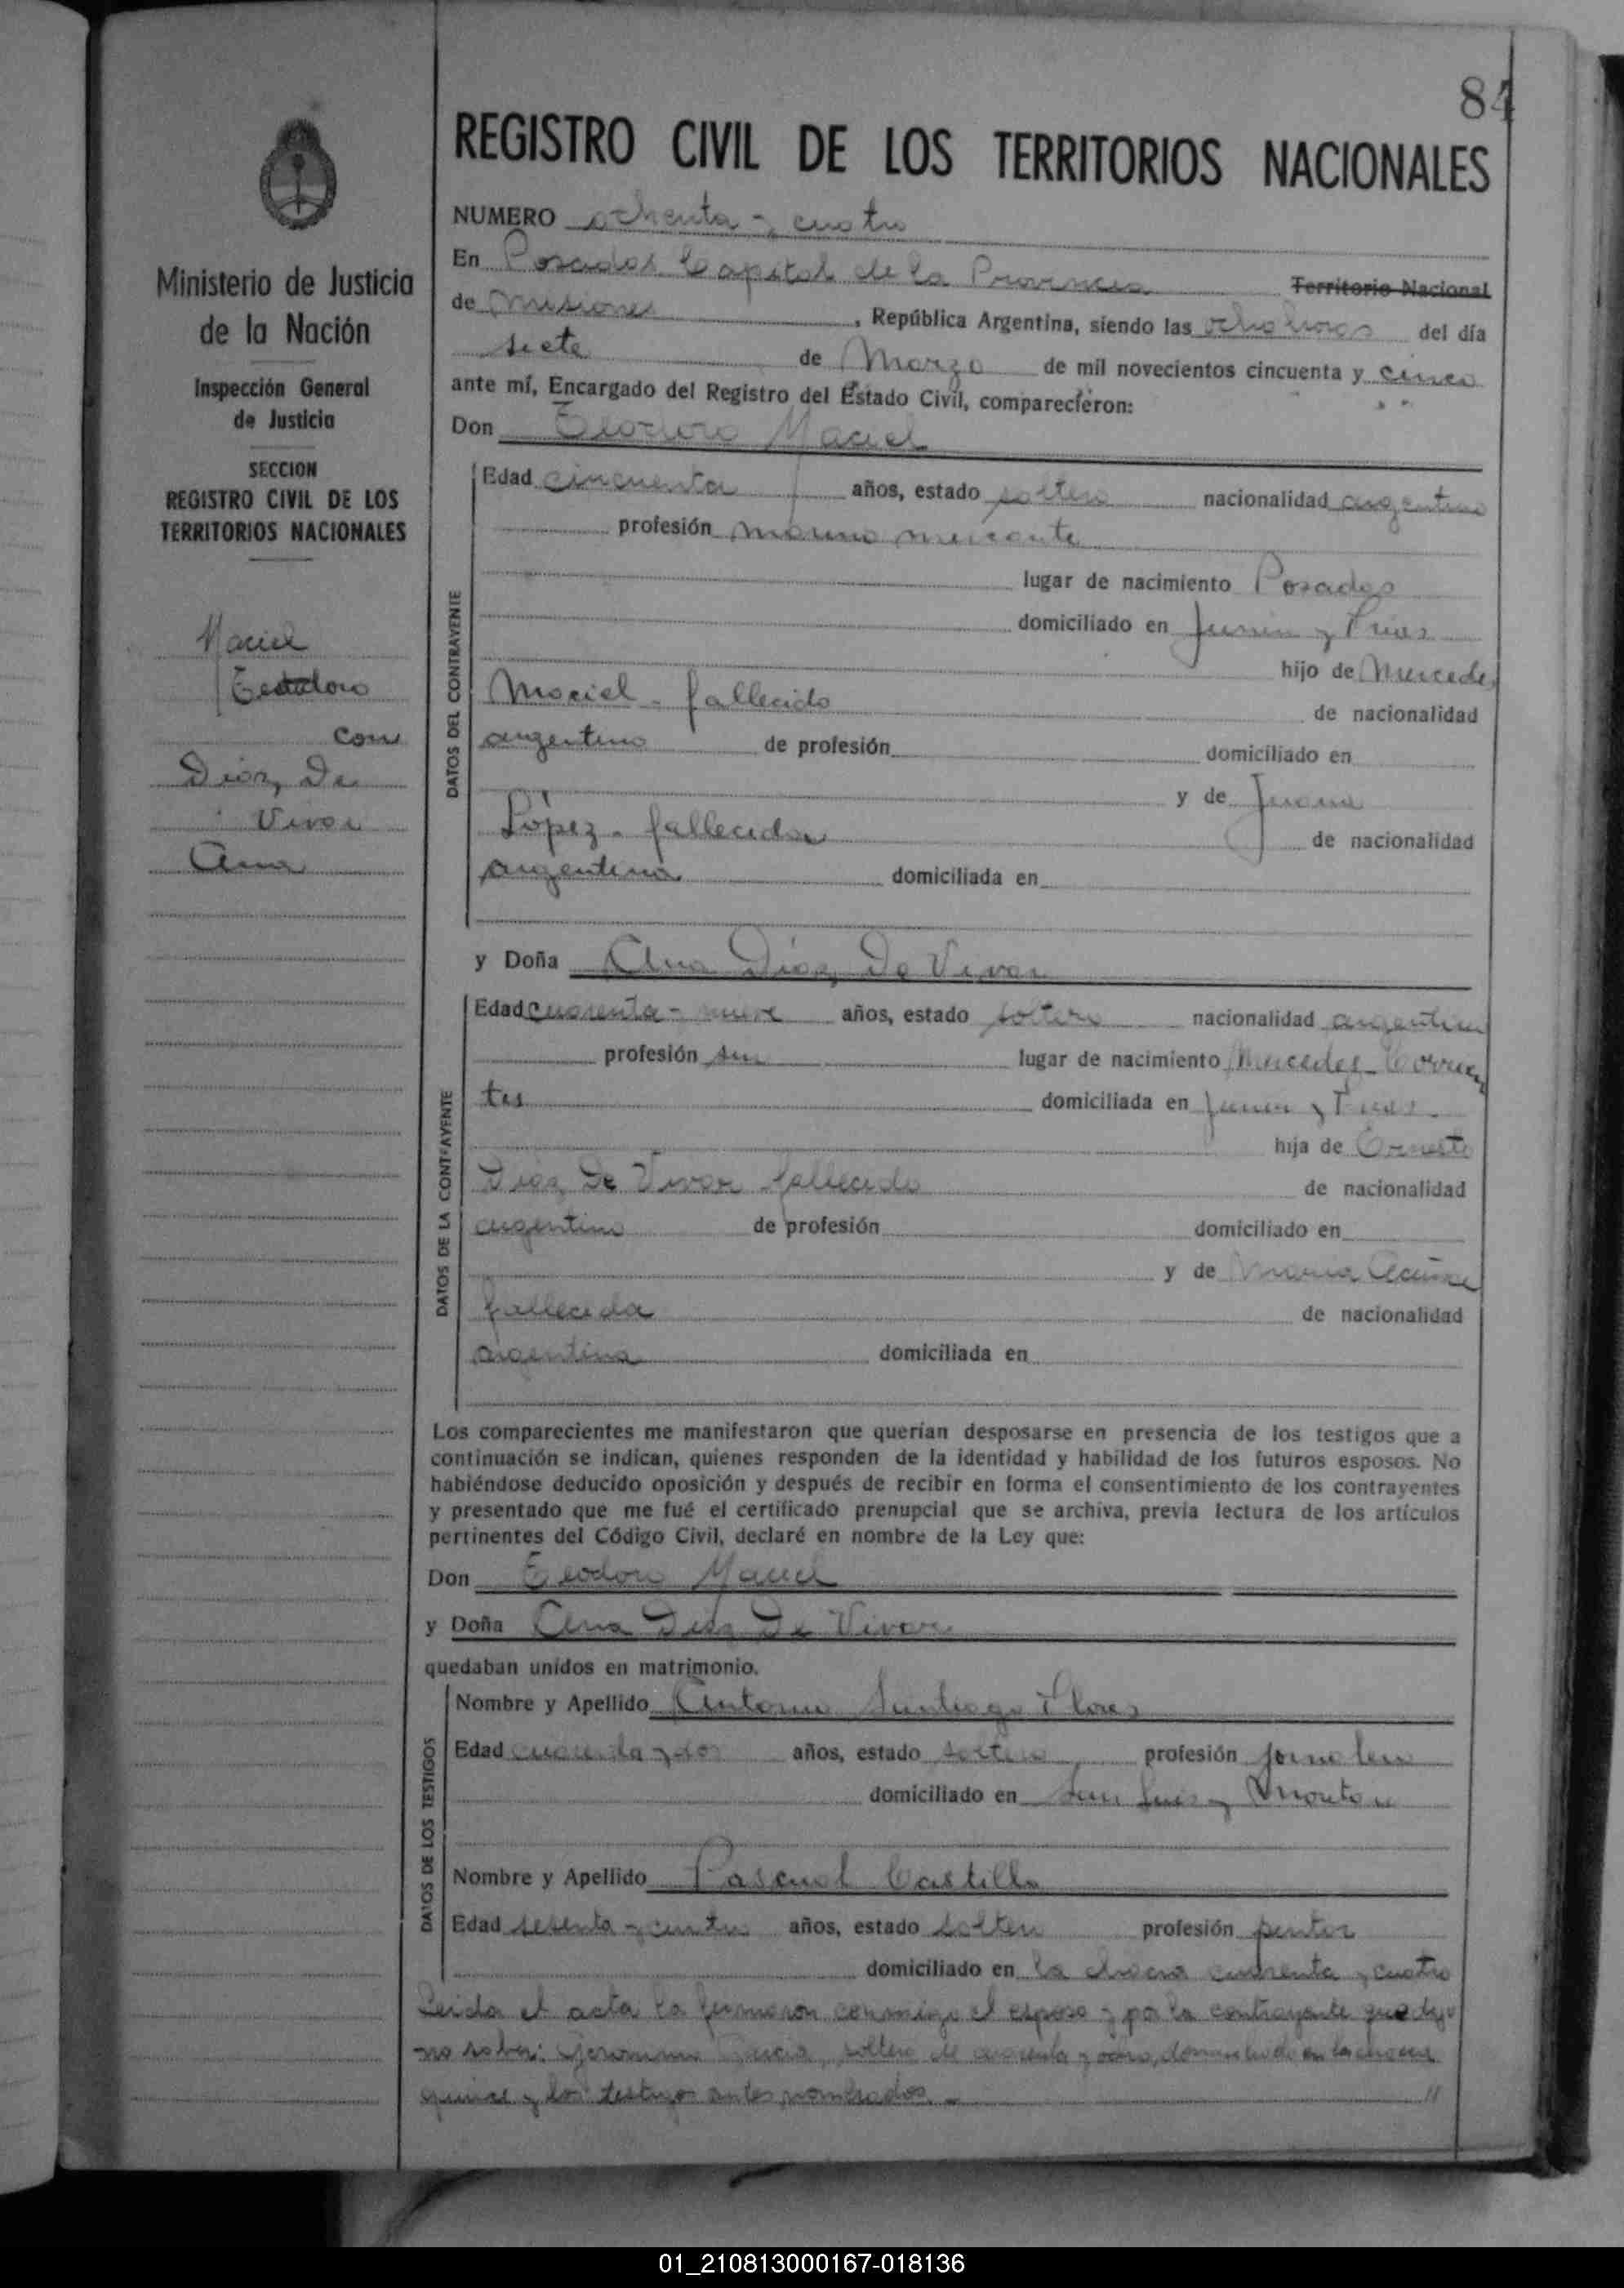 84
REGISTRO CIVIL DE LOS TERRITORIOS NACIONALES
NUMERO ochenta y cuatro
En Posadas Capital de la Provincia Territorio Nacional
de Misiones, República Argentina, siendo las ocho horas del día
siete de Marzo de mil novecientos cincuenta y cinco
ante mí, Encargado del Registro del Estado Civil, comparecieron:
Don Teodoro Maciel
Ministerio de Justicia
de la Nación
Inspección General
de Justicia
SECCION
REGISTRO CIVIL DE LOS
TERRITORIOS NACIONALES
Maciel
Teodoro
con
Díaz De
Vivar
Ana
DATOS DEL CONTRAYENTE
Edad cincuenta años, estado soltero nacionalidad argentino
profesión marino mercante
lugar de nacimiento Posadas
domiciliado en Junín y Frías
hijo de Mercedes
Maciel - fallecido de nacionalidad
argentino de profesión domiciliado en
y de Juana
López - fallecida de nacionalidad
argentina domiciliada en
y Doña Ana Díaz De Vivar
DATOS DE LA CONTRAYENTE
Edad cuarenta - nueve años, estado soltera nacionalidad argentina
profesión sin lugar de nacimiento Mercedes - Corrien
tes domiciliada en Junín y Frías
hija de Ernesto
Díaz De Vivar fallecido de nacionalidad
argentino de profesión domiciliado en
y de María Acuña
fallecida de nacionalidad
argentina domiciliada en
Los comparecientes me manifestaron que querían desposarse en presencia de los testigos que a
continuación se indican, quienes responden de la identidad y habilidad de los futuros esposos. No
habiéndose deducido oposición y después de recibir en forma el consentimiento de los contrayentes
y presentado que me fué el certificado prenupcial que se archiva, previa lectura de los artículos
pertinentes del Código Civil, declaré en nombre de la Ley que:
Don Teodoro Maciel
y Doña Ana Díaz De Vivar
quedaban unidos en matrimonio.
DATOS DE LOS TESTIGOS
Nombre y Apellido Antonio Santiago Flores
Edad cuarenta y dos años, estado soltero profesión jornalero
domiciliado en San Luis y
Nombre y Apellido Pascual Castillo
Edad sesenta y cuatro años, estado soltero profesión pintor
domiciliado en la chacra cuarenta y cuatro
Leída el acta la firmaron conmigo el esposo y por la contrayente que dijo
no saber: Geronimo García, soltero de cuarenta y ocho, domiciliado en la chacra
quince y los testigos antes nombrados. -
01_210813000167-018136